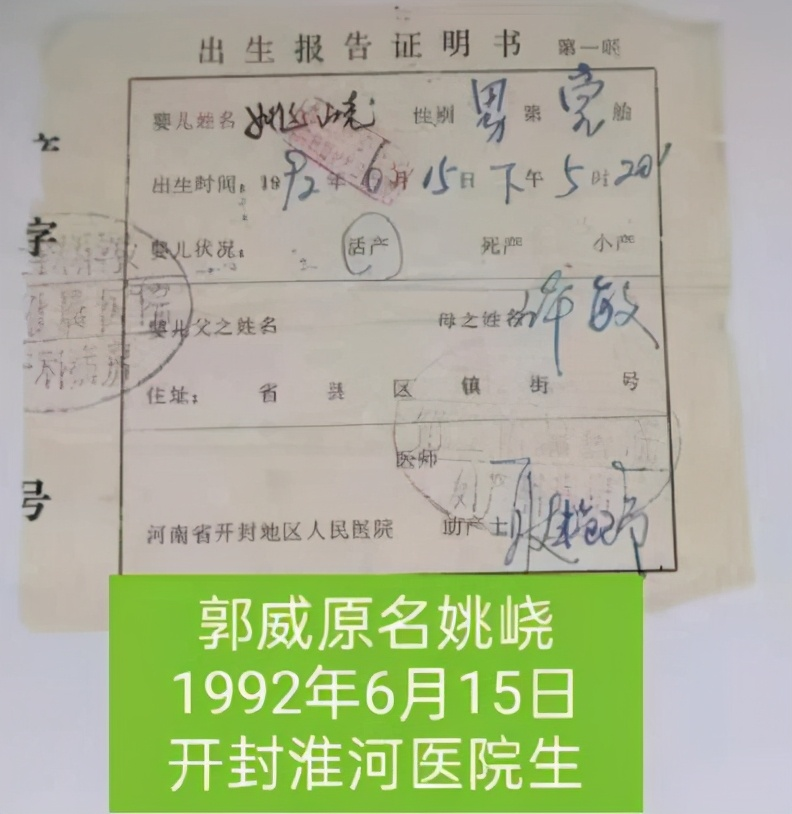 出生报告证明书 第一联
婴儿姓名 姚峣 性别 男 第 壹 胎
出生时间: 1992年6月15日下午5时20'
婴儿状况: 活产 死产 小产
婴儿父之姓名 母之姓名 许敏
住址: 省 县 区 镇 街 号
医师
河南省开封地区人民医院 助产士
字
号
郭威原名姚峣
1992年6月15日
开封淮河医院生